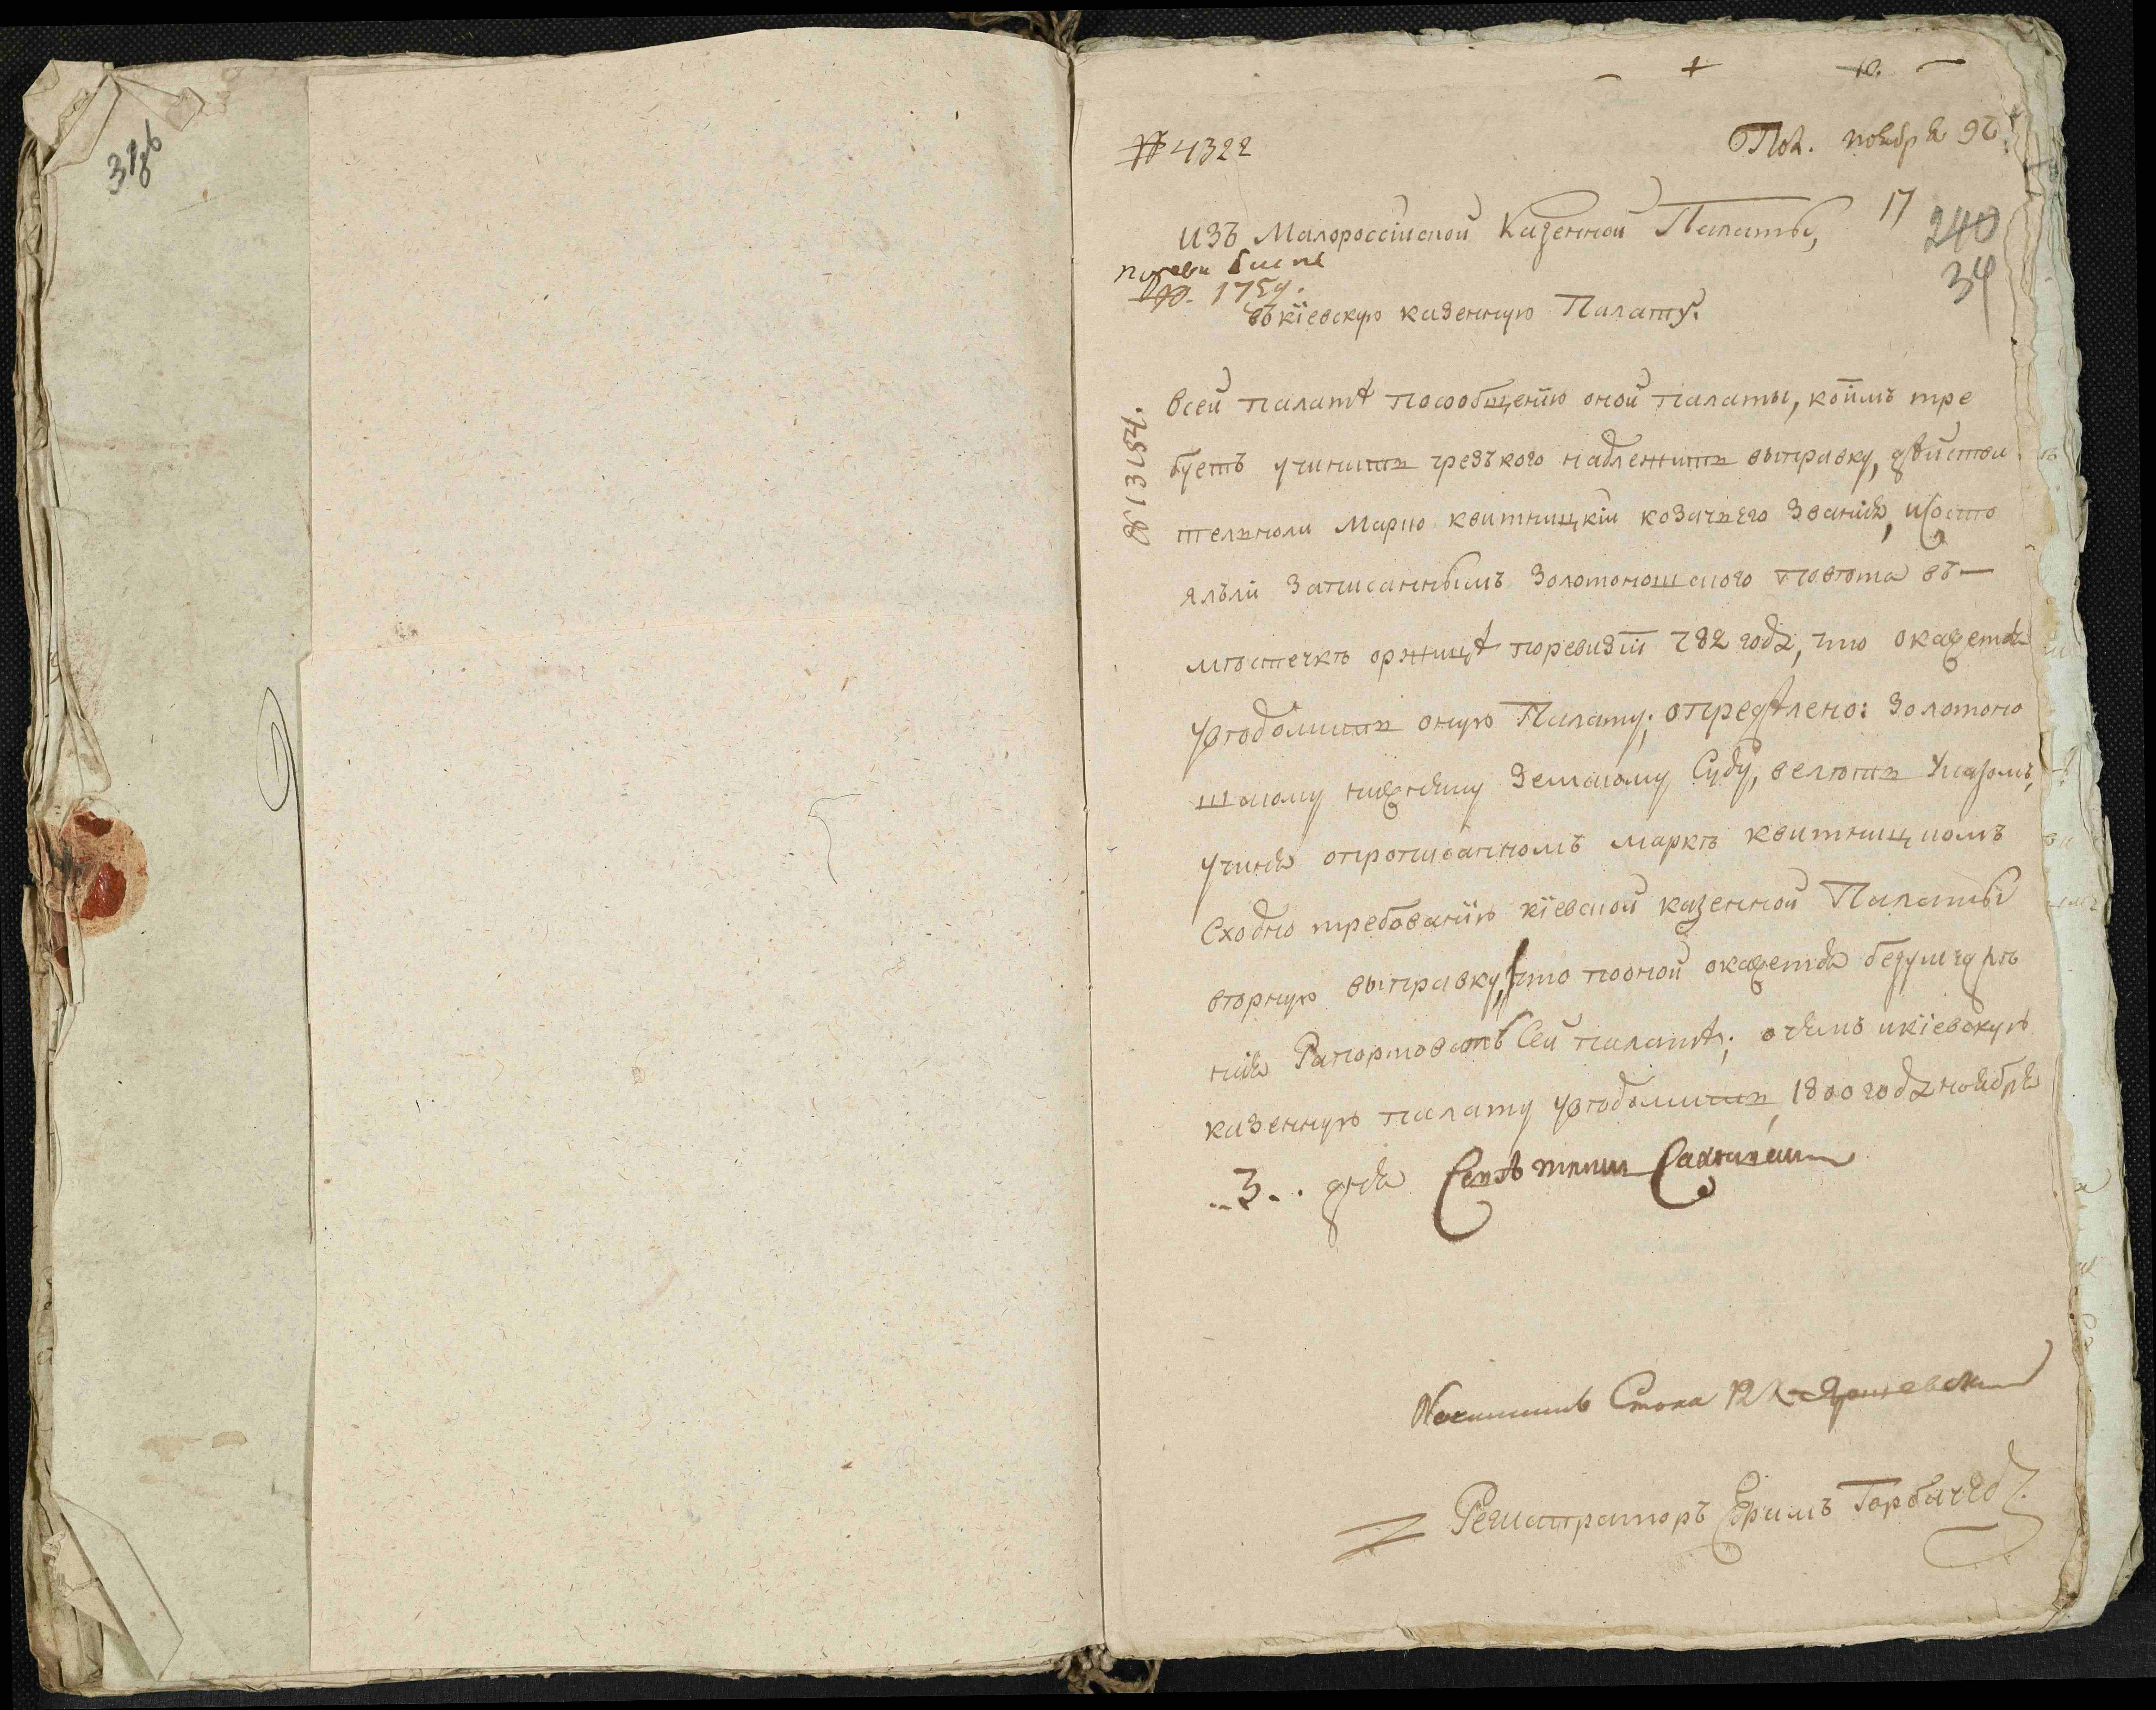 31/86
№ 4322
Пол. ноября 9го
17
240
34
изъ Малороссїиской Казенной Палаты,
№. 1754.
въ кїевскую казенную Палату.
всей палатѣ посообщенїю оной палаты, коїмъ тре
буетъ учинить чрезъ кого надлежитъ выправку, дѣйстви
тельноли Марко квитницкїи козачьего званїя, исосто
ялъли записаннымъ Золотоношского повѣта въ
мѣстечкѣ оржицѣ поревизїи 782 года, что окажется
увѣдомить оную Палату; опредѣлено: Золотоно
шскому нижнему Земскому Суду, велѣть Указомъ,
учиня опрописанномъ маркѣ квитницкомъ
Сходно требованїю кїевской казенной Палаты
вѣрную выправку, что пооной окажется безумедлѣ
нїя Рапортовать Сей палатѣ; очемъ икїевскую
казенную палату увѣдомить, 1800 года ноября
..3.. дня
Регистраторъ Ефимъ Горбачев